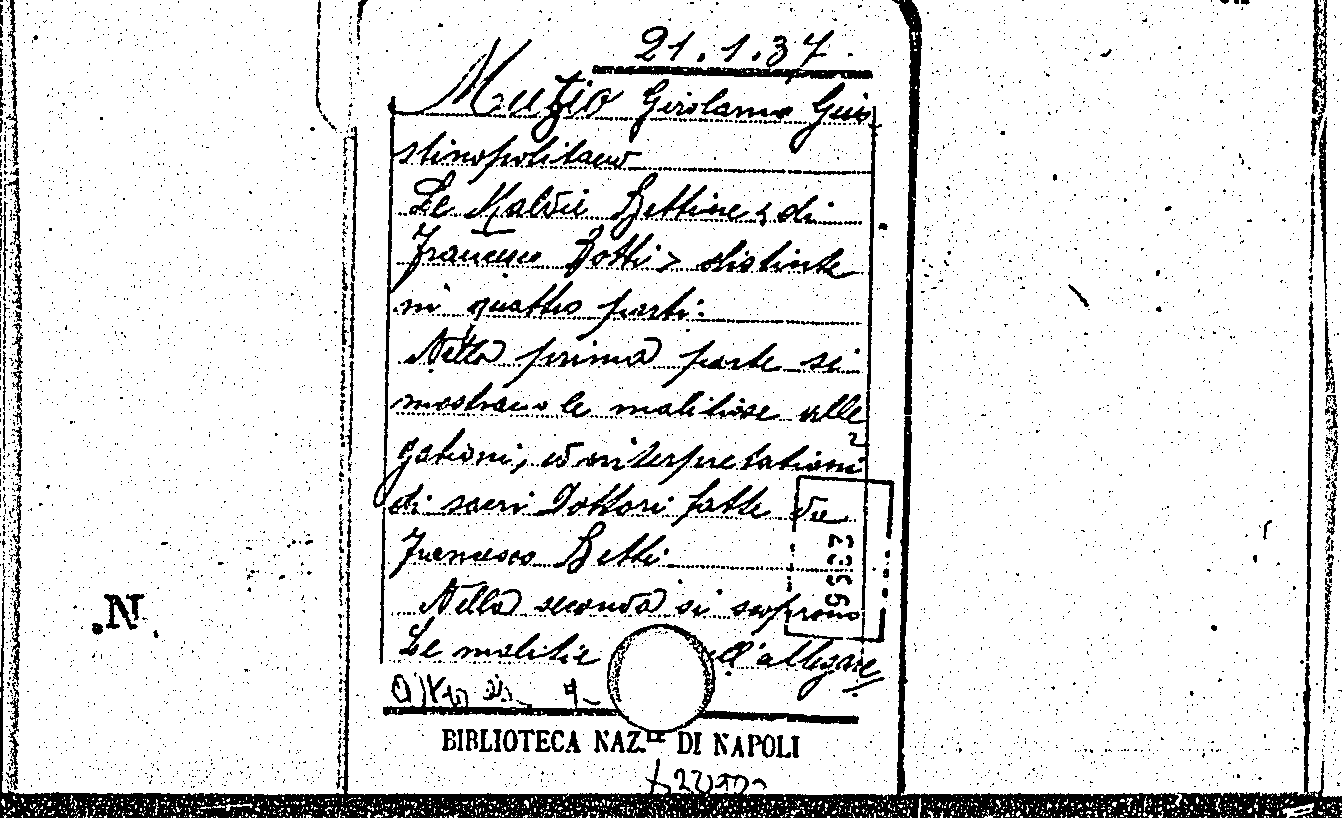 21.1.37.
Mutio Girolamo Giu-
stinopolitano
Le Malitie Bettine < di
Francesco Betti > distinte
in quattro parti:
Nella prima parte si
mostrano le malitiose alle
gationi, et interpretationi
di sacri Dottori fatte da
Francesco Betti.
Nella seconda si scoprono
Le malitie ell'allegare
BIBLIOTECA NAZ.LE DI NAPOLI
.N.